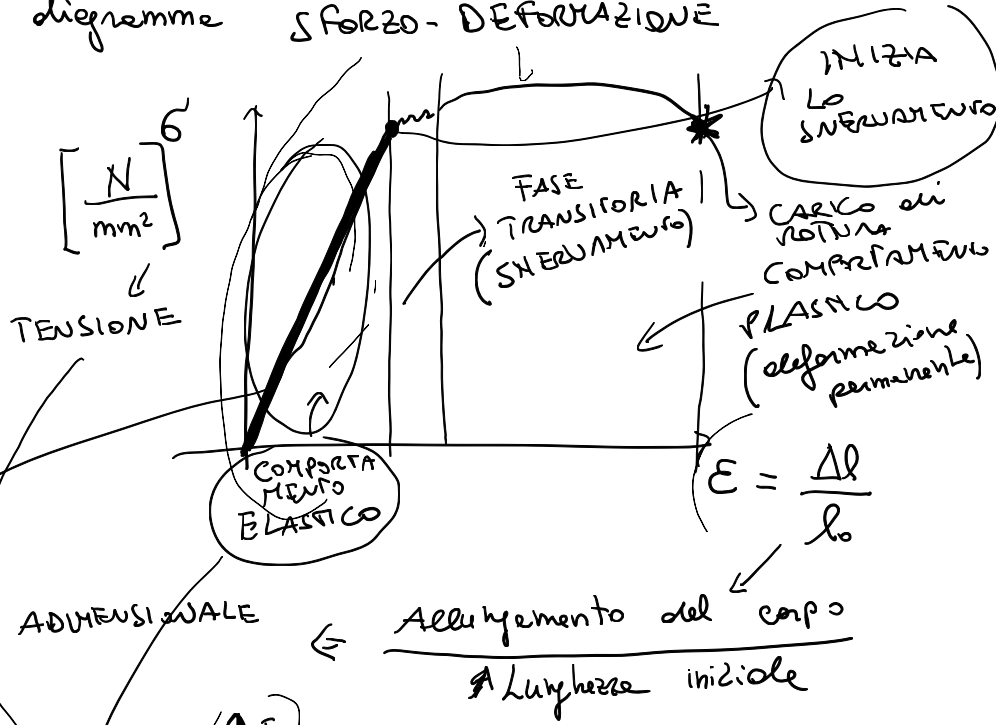 diagramma SFORZO - DEFORMAZIONE
INIZIA
LO
SNERVAMENTO
σ
[N/mm²]
TENSIONE
FASE
TRANSITORIA
(SNERVAMENTO)
CARICO di
ROTTURA
COMPORTAMENTO
PLASTICO
(deformazione
permanente)
COMPORTA
MENTO
ELASTICO
ε = Δl / l₀
ADIMENSIONALE ⇐ Allungamento del corpo
Lunghezza iniziale